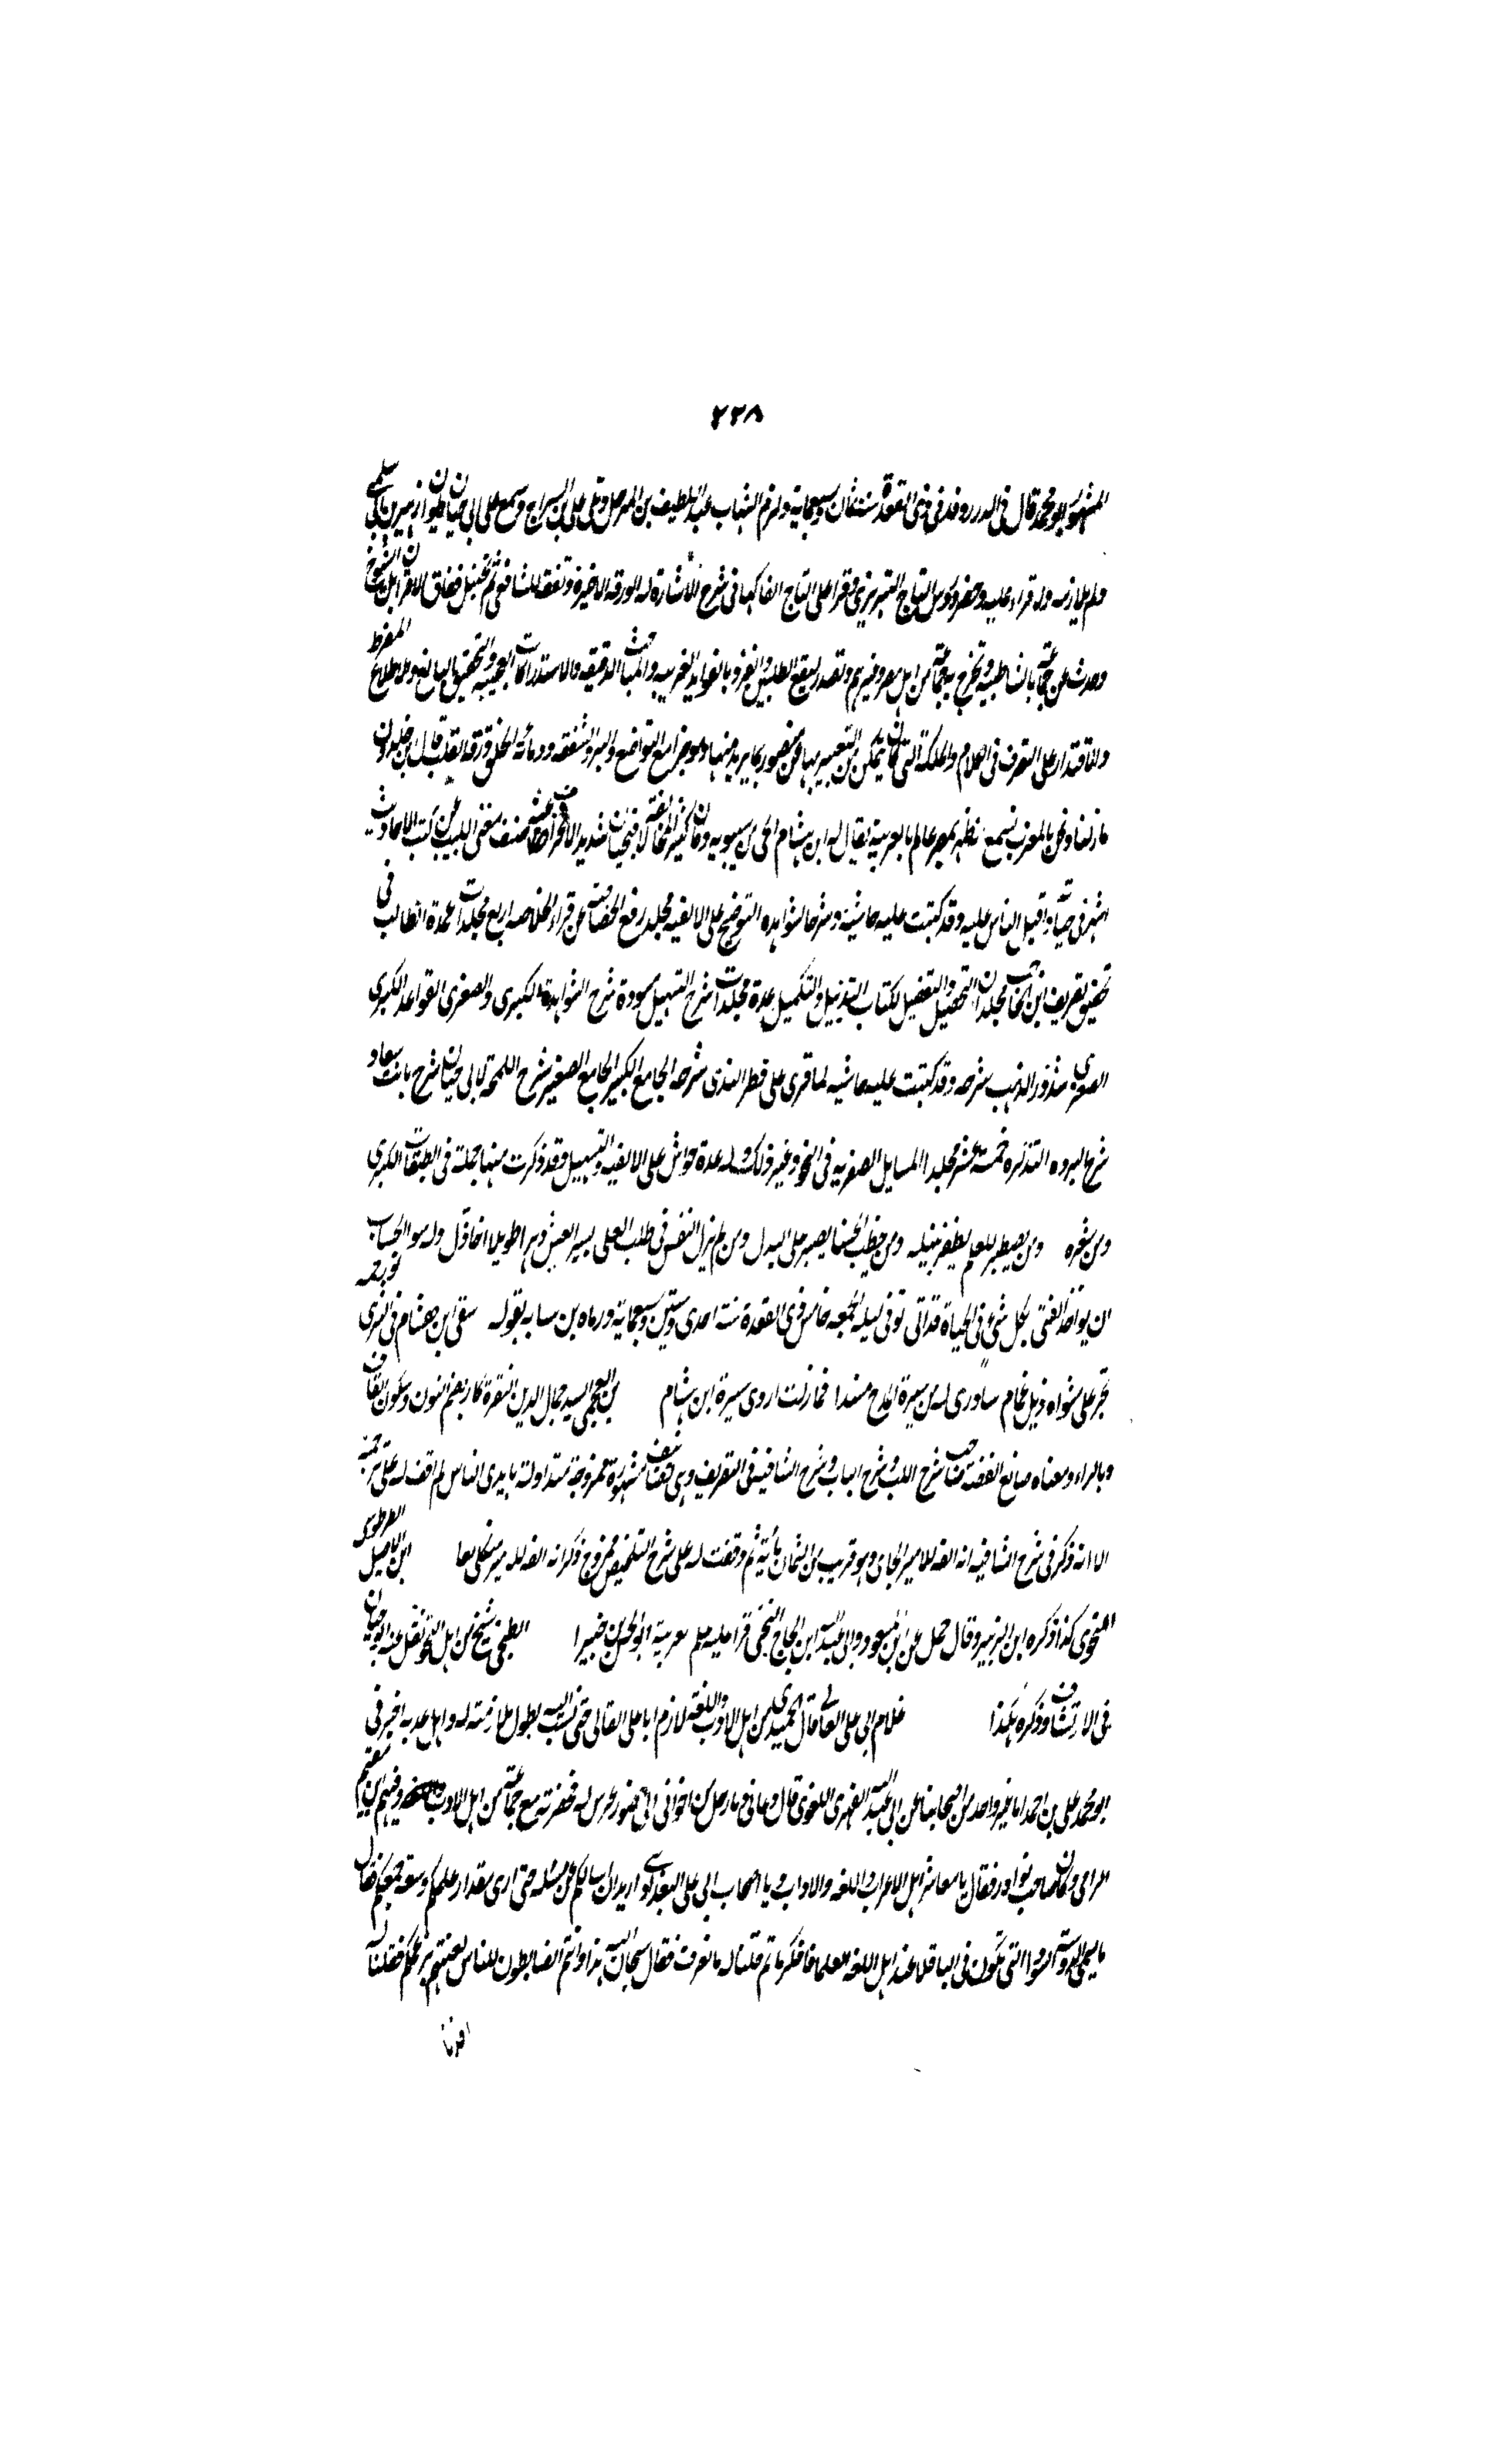 ٢٢٨
المشهور ابو محمد قال فى الدرر ولد فى ذى القعدة سنة ثمان وسبعماية ولزم الشهاب عبد اللطيف بن المرحل وتلى على بن السراج وسمع على ابى حيان ديوان زهير بن ابى سلمى
ولم يلازمه ولا قراء عليه وحضر دروس التاج التبريزى وقرا على التاج الفاكهانى شرح الاشارة له الا الورقة الاخيرة وتفقه للشافعى ثم تحنبل ففاق الاقران بل الشيوخ
وحدث عن جماعة بالشاطبية وتخرج به جماعة من اهل مصر وغيرهم وتصدر لنفع الطلبين وانفرد بالفوايد الغريبه والمباحث الدقيقه والاستدراكات العجيبه والتحقيق البالغ والاطلاع المفرط
والاقتدار على التصرف فى الكلام والملكة التى كان يتمكن من التعبير بها عن مقصوده بما يريد مسهبا وموجزا مع التواضع والبر والشفقه ودماثة الخلق ورقة القلب قال ابن خلدون
ما زلنا ونحن بالمغرب نسمع انه ظهر بمصر عالم بالعربية يقال له ابن هشام انحى من سيبويه وكان كثير المخالفة لابى حيان شديد الانحراف عنه صنف مغنى اللبيب عن كتب الاعاريب
اشتهر فى حياته واقبل الناس عليه وقد كتبت عليه حاشية وشرحا لشواهده التوضيح على الالفيه مجلد رفع الخصاصة عن قراء الخلاصه اربع مجلدات عمدة الطالب فى
تحقيق تصريف ابن الحاجب مجلدان التحصيل والتفصيل لكتاب التذييل والتكميل عدة مجلدات شرح التسهيل مسودة شرح الشواهد الكبرى والصغرى القواعد الكبرى
الصغرى شذور الذهب شرحه وقد كتبت عليه حاشيه لما قرى على قطر الندى شرحه الجامع الكبير الجامع الصغير شرح اللمحة لابى حيان شرح بانت سعاد
شرح البرده التذكره خمسة عشر مجلدا المسايل السفريه فى النحو وغير ذلك وله عدة حواش على الالفيه والتسهيل وقد ذكرت منها جملة فى الطبقات الكبرى
ومن شعره ومن يصطبر للعلم يظفر بنيله ومن يخطب الحسنا يصبر على البذل ومن لم يذل النفس فى طلب العلى يسيرا يعش دهرا طويلا اخا ذل وله سوء الحساب
ان يواخذ الفتى بكل شئ فى الحياة قد اتى توفى ليلة الجمعه خامس ذى القعدة سنة احدى وستين وسبعماية ورثاه بن نباتة بقوله سقى ابن هشام فى الثرى نوء رحمه
تجر على مثواه ذيل غمام ساروى له من سيرة المدح مسندا فما زلت اروى سيرة ابن هشام بن العجمى السيد جمال الدين النقره كار بضم النون وسكون القاف
وبالراء ومعناه صانع الفضه صاحب شرح اللب وشرح اللباب وشرح الشافيه فى التصريف وهى تصانيف مشهورة ممزوجة متداولة بايدى الناس لم اقف له على ترجمة
الا انه ذكر فى شرح الشافيه انه الفه للامير الجاى وهو قريب من الثمان ماية ثم وقفت له على شرح التلخيص ممزوج ذكر انه الفه للامير منكلى بغا ابن الاصيل الطرطوسى
النحوى كذا ذكره ابن الزبير وقال حمل عن ابن مسعود وابى عبد الله ابن الحاج التجيبى قرا عليه علم عربية ابو الحسن بن خيرا الطبخى شيخ من اهل النحو نقل عنه ابو حيان
فى الارتشاف وذكره هكذا غلام ابى على القالى قال الحميدى من اهل الادب واللغة لازم ابا على القالى حتى نسب اليه بطول ملازمته له واهل عدبه اخبر فى
ابو محمد على بن احمد انا غير واحد من اصحابنا عن ابى عبد الله الفهرى اللغوى قال دعانى يوما رجل من اخوانى الى حضور عرس له فحضرته مع جماعة من اهل الادب وفيهم ابن مقيم
الزامى وكان صاحب نوادر فقال يا معاشر اهل الاعراب واللغه والاداب ويا اصحاب ابى على البغدادى اريد ان اسالكم عن مسئله حتى ارى مقدار علمكم وسعة جمعكم فقال
ما يسمى الدويبة السودا التى تكون فى الباقلا عند اهل اللغه العلما فافكرنا ثم قلنا له ما نعرف فقال سبحان الله هذا وانتم الضابطون للناس لغتهم بزعمكم فقلنا له
افدنا